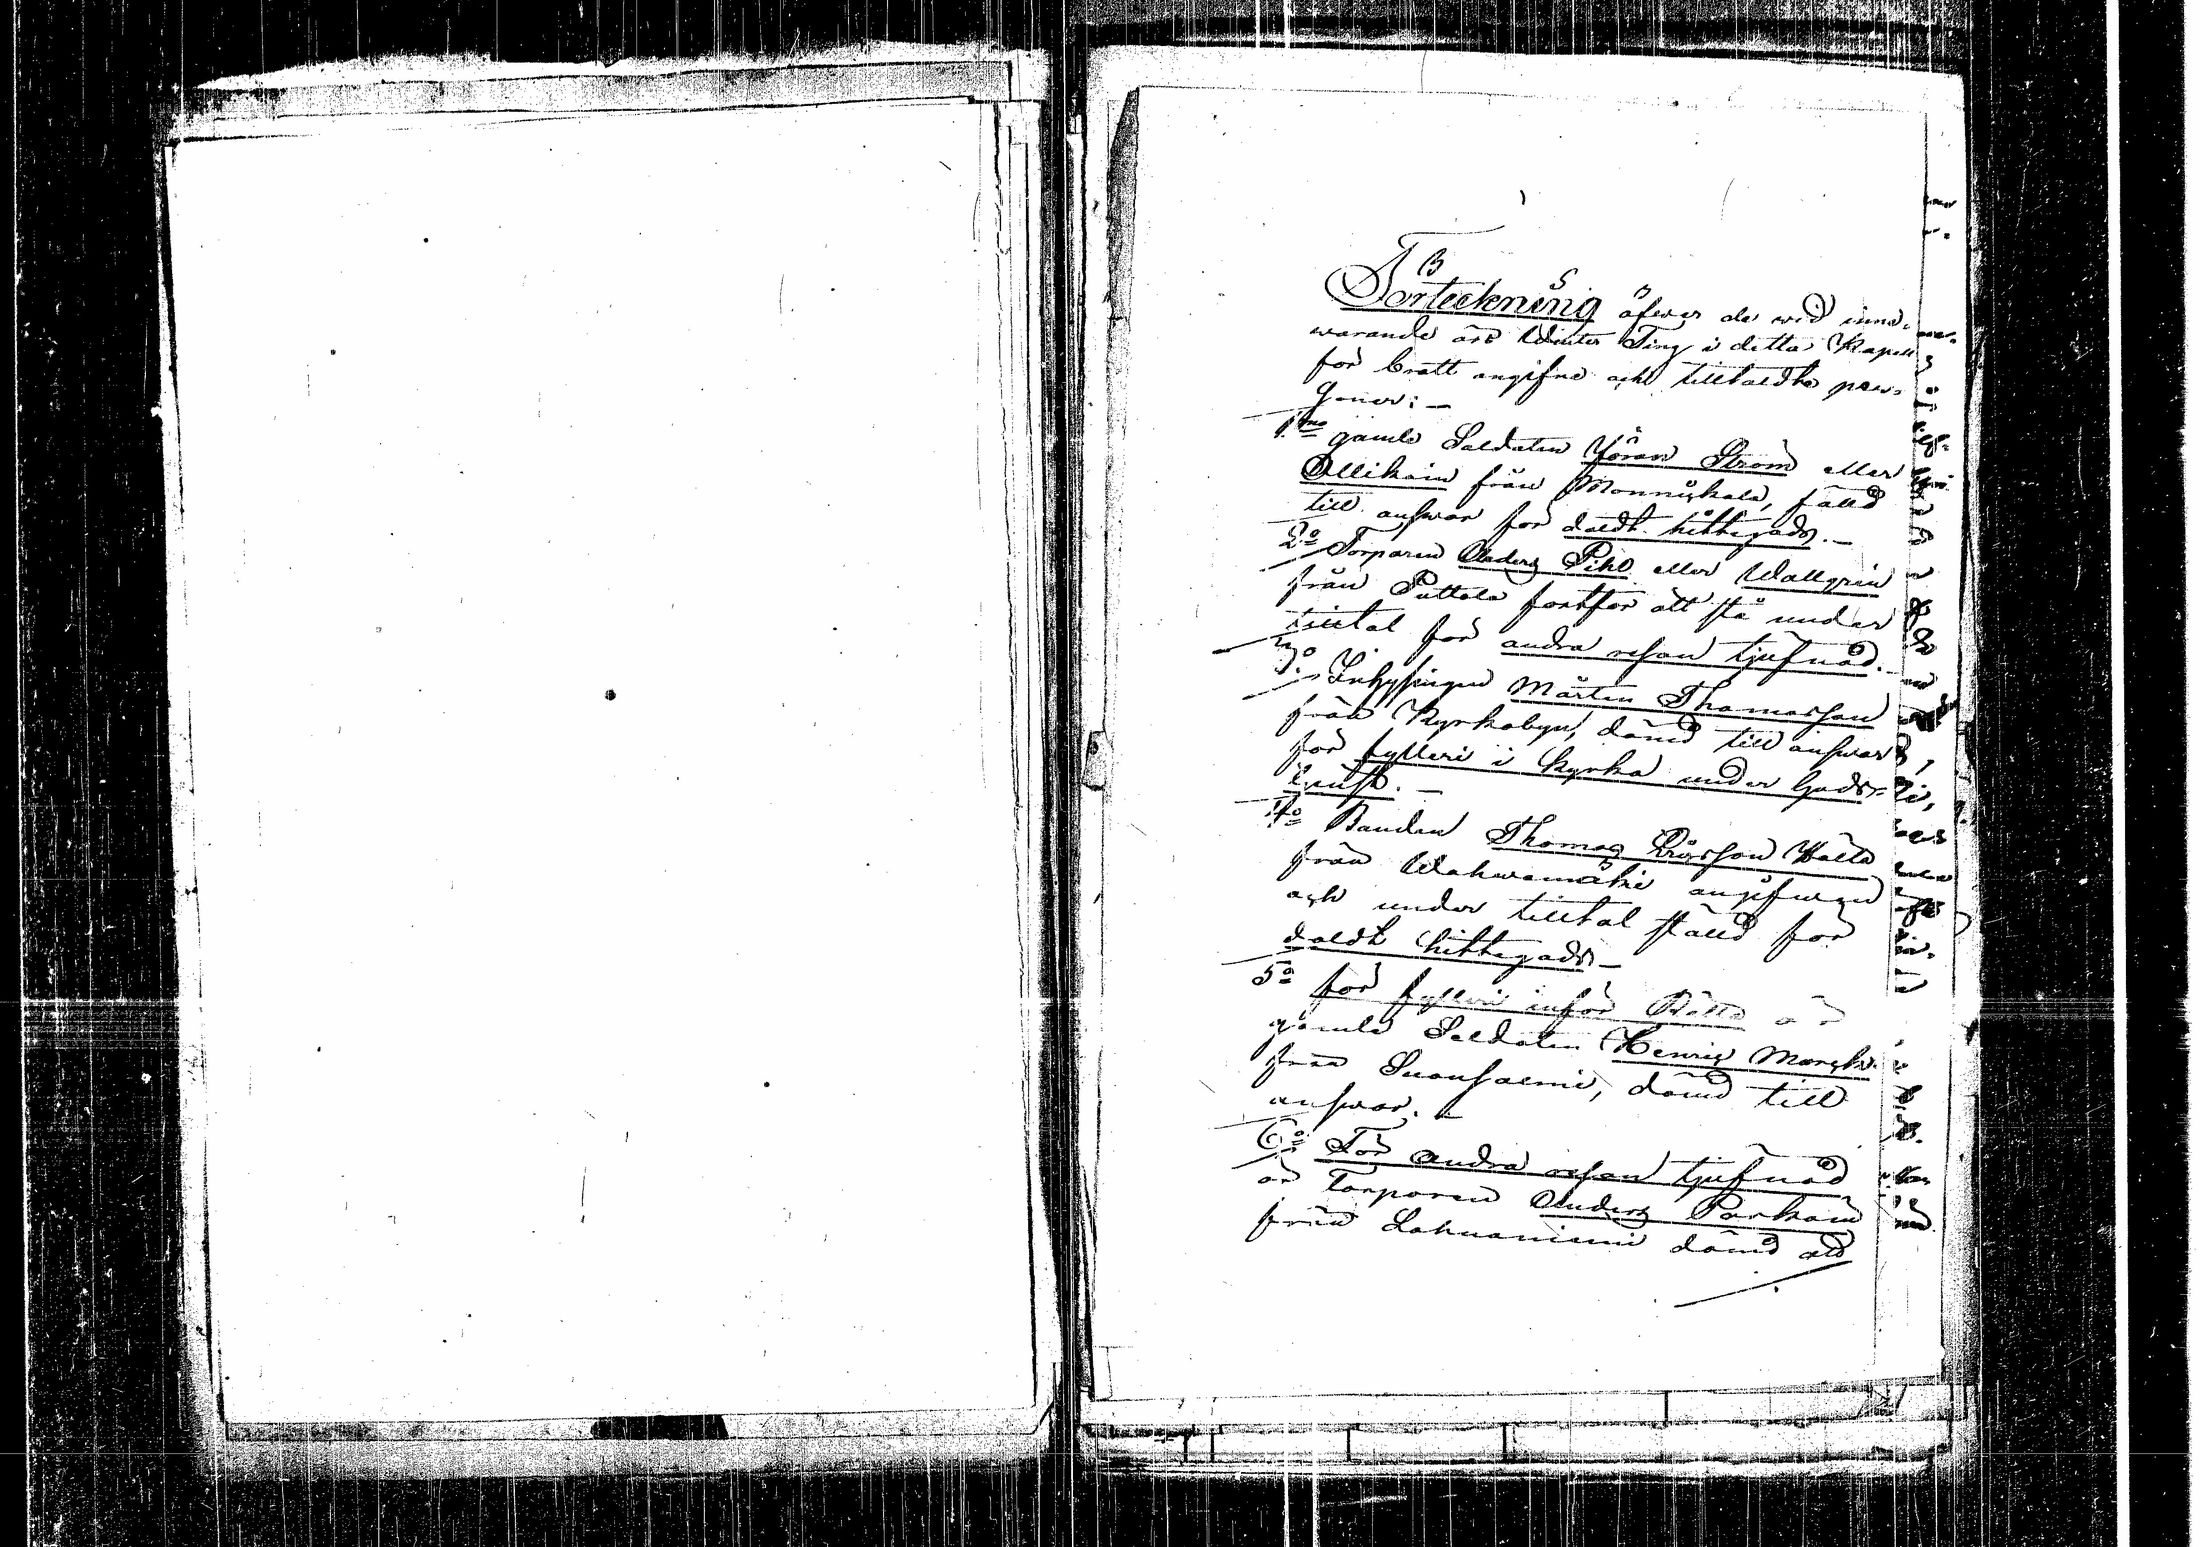 B
Förteckning öfwer de wid inne-
warande års Winter Ting i detta Kapell
för brott angifne och tilltaldte per-
soner: —
1mo gamle Soldaten Jöran Ström eller
Ollikain från Monnikala, fälld
till answar för doldt hittegods. —
2o Torparen Anders Pihl eller Wallgren
från Puttola fortfar att stå under
tilltal för andra resan tjufnad. —
3o Inhysingen Mårten Thomasson
från Kyrkobyn, dömd till answar
för fylleri i kyrka under Guds-
tjenst. —
4o Bonden Thomas Ericsson Halta
från Wahwamäki angifwen
och under tilltal ställd för
doldt hittegods —
5o för fylleri inför Rätta är
gamle Soldaten Henric Morck
från Suonsalmi, dömd till
answar. —
6o För andra resan tjufnad
är Torparen Anders Parkain
från Lahnaniemi dömd att